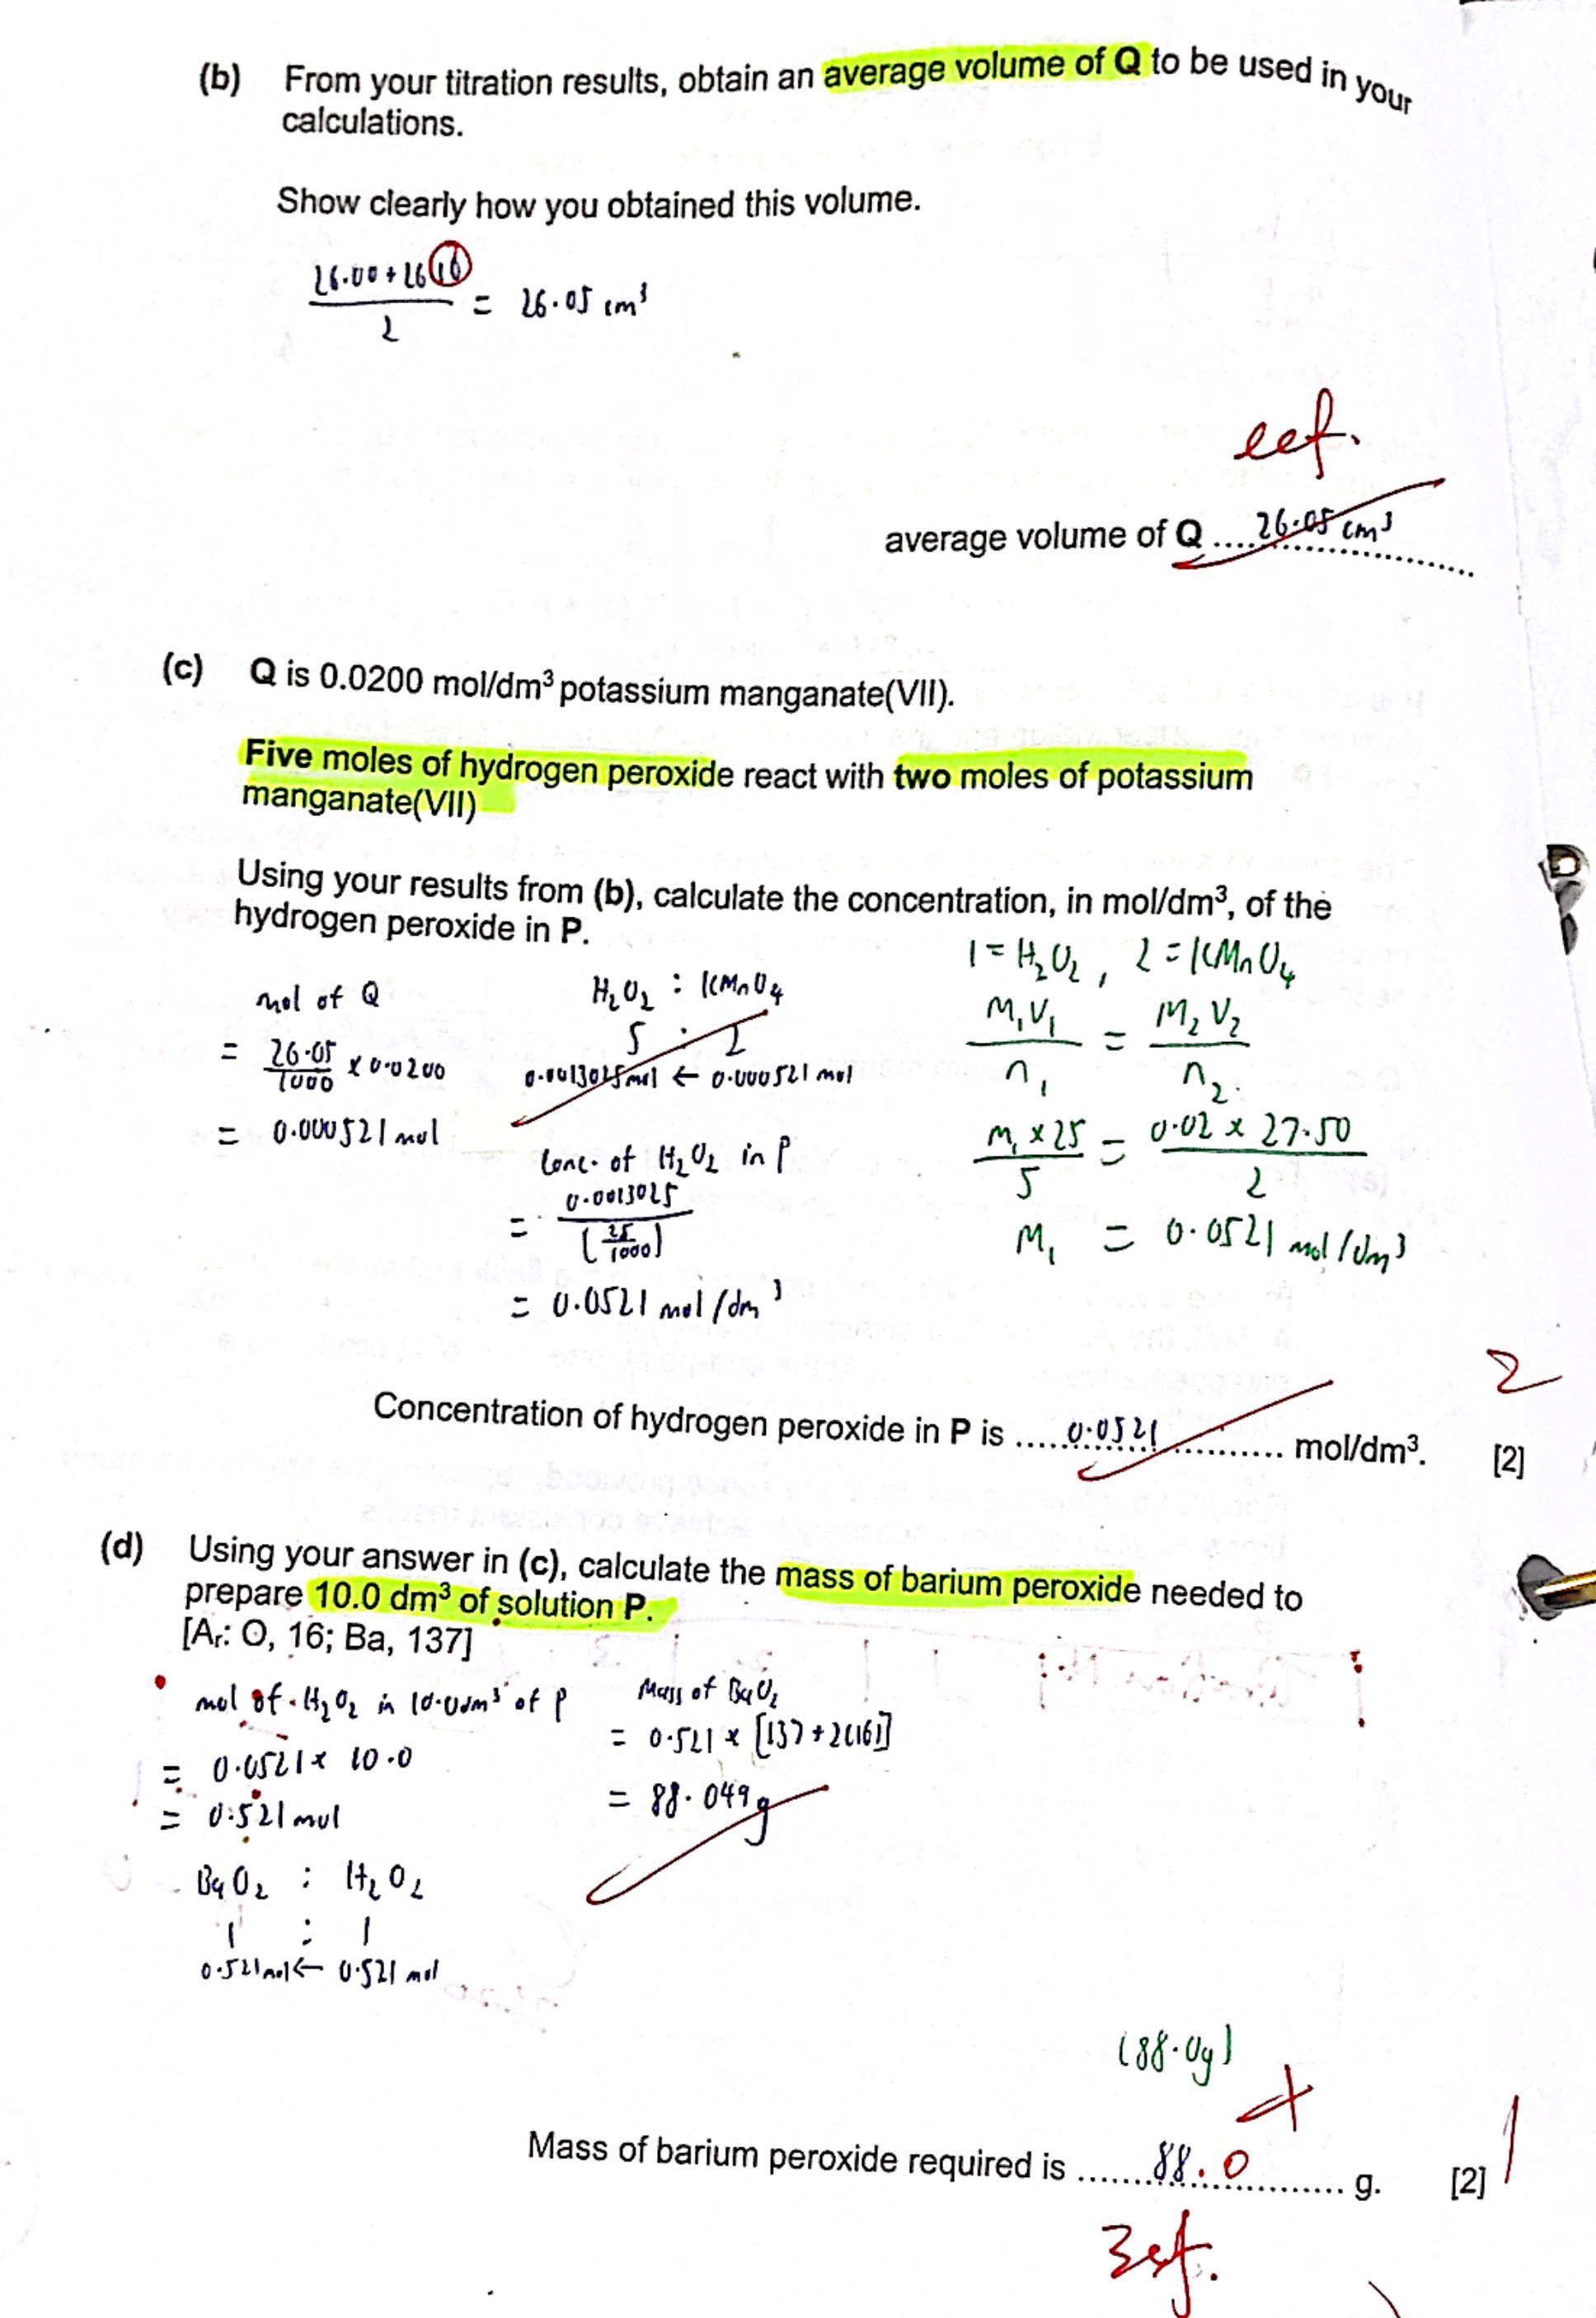 (b) From your titration results, obtain an average volume of Q to be used in your
calculations.
Show clearly how you obtained this volume.
26.00 + 26.10
2
= 26.05 cm³
ecf.
average volume of Q .... 26.05 cm³
(c) Q is 0.0200 mol/dm³ potassium manganate(VII).
Five moles of hydrogen peroxide react with two moles of potassium
manganate(VII)
Using your results from (b), calculate the concentration, in mol/dm³, of the
hydrogen peroxide in P.
mol of Q
= 26.05/1000 x 0.0200
= 0.000521 mol
H₂O₂ : KMnO₄
5 : 2
0.0013025 mol ← 0.000521 mol
Conc. of H₂O₂ in P
= 0.0013025
(25/1000)
= 0.0521 mol/dm³
1 = H₂O₂, 2 = KMnO₄
M₁V₁/n₁ = M₂V₂/n₂
M₁ x 25/5 = 0.02 x 27.50/2
M₁ = 0.0521 mol/dm³
Concentration of hydrogen peroxide in P is ..... 0.0521 ..... mol/dm³. [2]
2
(d) Using your answer in (c), calculate the mass of barium peroxide needed to
prepare 10.0 dm³ of solution P.
[Aᵣ: O, 16; Ba, 137]
mol of H₂O₂ in 10.0dm³ of P
= 0.0521 x 10.0
= 0.521 mol
BaO₂ : H₂O₂
1 : 1
0.521 mol ← 0.521 mol
Mass of BaO₂
= 0.521 x [137 + 2(16)]
= 88.049g
(88.0g)
Mass of barium peroxide required is ...... 88.0 ...... g. [2]
1
3sf.